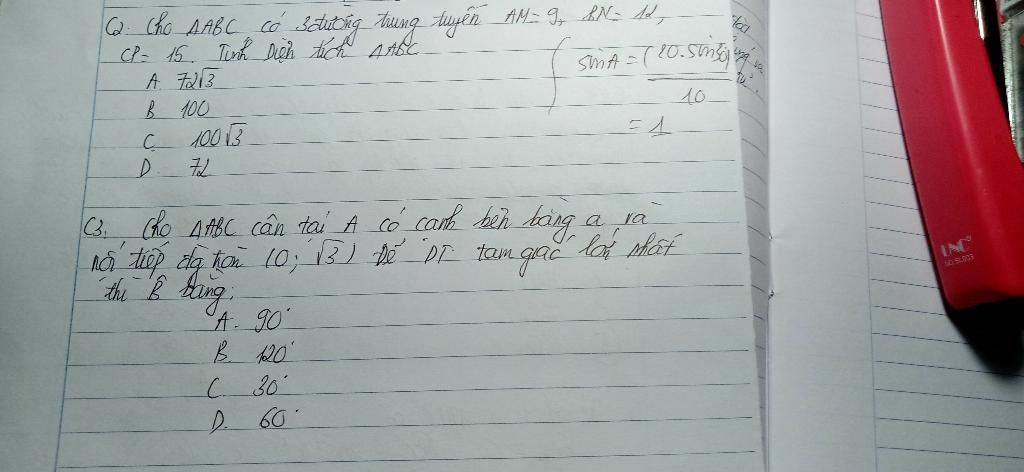 C2. Cho ΔABC có 3 đường trung tuyến AM = 9, BN = 12,
CP = 15. Tính Diện tích ΔABC
A. 72√3
B. 100
C. 100√3
D. 72
sinA = (20.sin30)
10
= 1
C3. Cho ΔABC cân tại A có cạnh bên bằng a, và
nội tiếp đg tròn (O; √3) Để DT tam giác lớn nhất
thì B̂ bằng:
A. 90°
B. 120°
C. 30°
D. 60°
UNC
NO.SL003